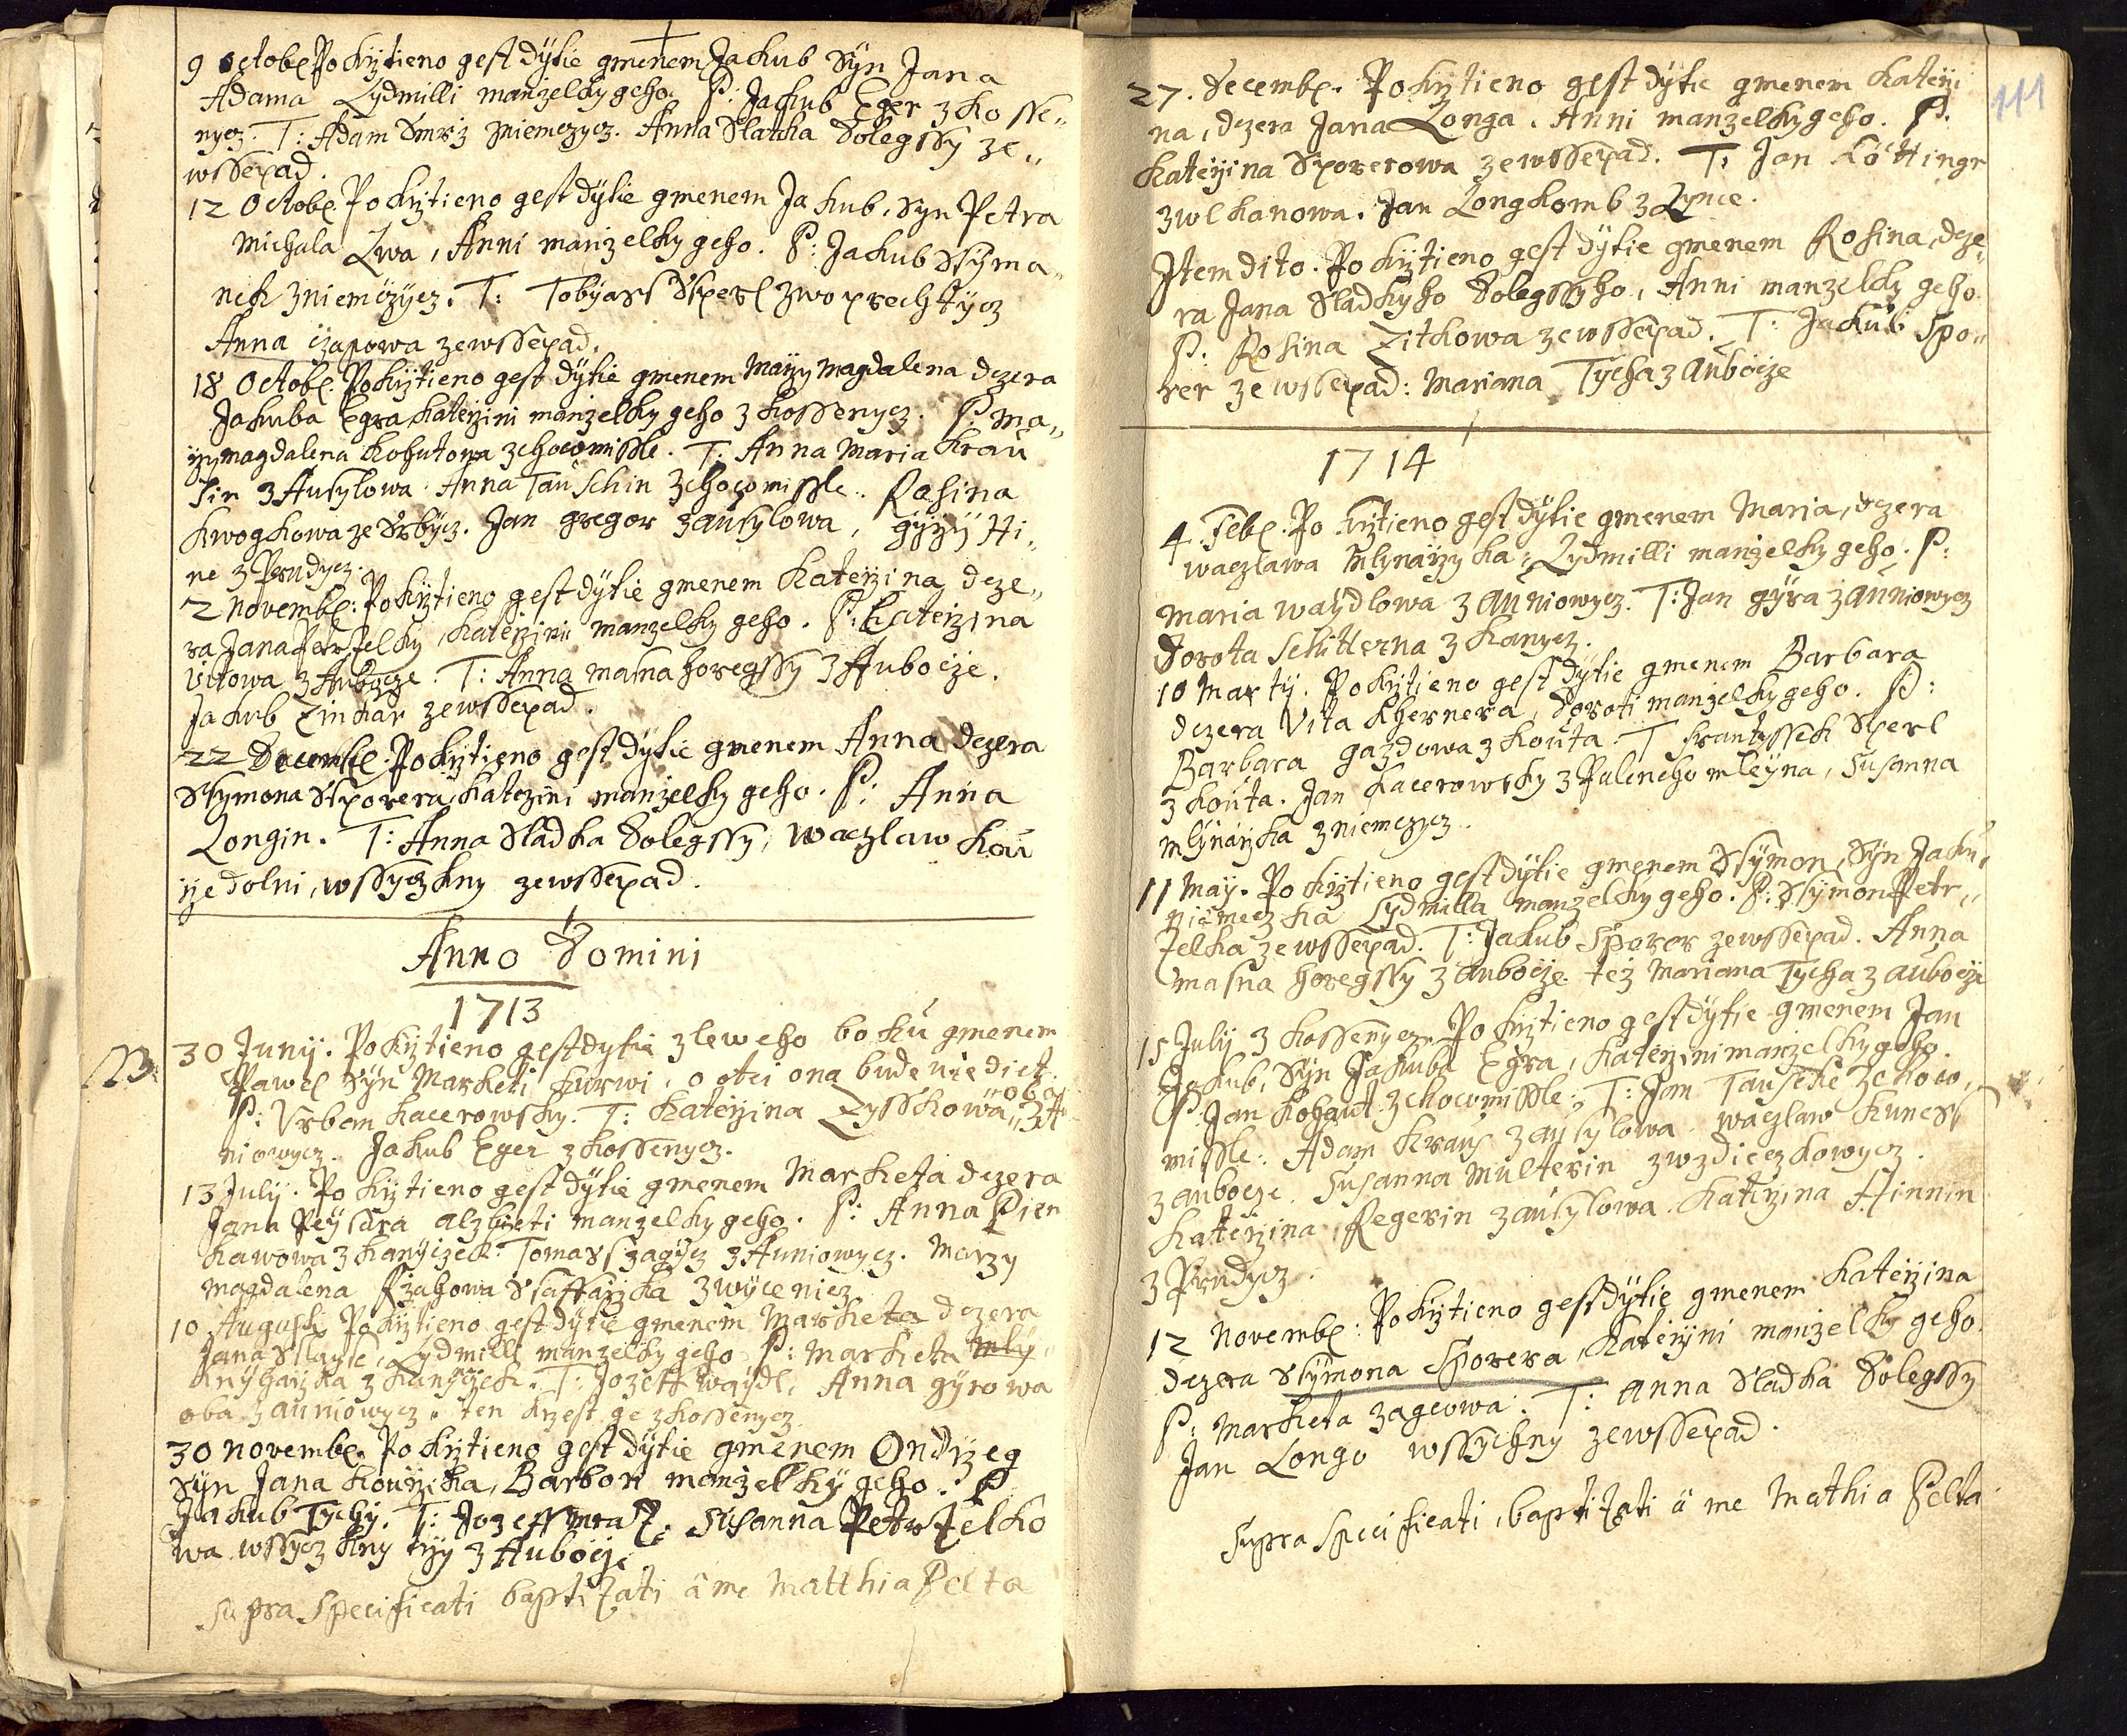 9 octobr. Pokrztieno gest dýtie gmenem Jakub Syn Jana
Adama Lydmilli manzelky geho. P: Jakub Eger z Kosse„
nycz. T: Adam Smrz z niemczycz. Anna Sladka Dolegssy ze„
wssepad.
12 Octobr. Pokrztieno gest dýtie gmenem Jakub, Syn Petra
Michala Lwa, Anni manzelky geho. P: Jakub Ssyma„
nek z niemczycz. T: Tobyass Ssperl z woprechtycz
Anna czapowa zewssepad.
18 Octobr. Pokrztieno gest dýtie gmenem Marzy Magdalena dczera
Jakuba Egra, Katerzini manzelky geho z Kossenycz. P: Ma„
rzy magdalena Kohutowa z chocomissle. T: Anna Maria Krau
sin z Ausylowa. Anna Tauschin z chocomissle. Rosina
Kwogkowa ze Srbycz. Jan gregor z ausylowa, gyrzy Hi„
ne z Prudycz.
2 Novembr: Pokrztieno gest dýtie gmenem Katerzina dcze„
ra Jana Petrzelky, Katerzini manzelky geho. P: Katerzina
Vitowa z Aubocze. T: Anna masna horegssy z Auboczie.
Jakub Zinkar zewssepad.
22 Decembr. Pokrztieno gest dýtie gmenem Anna dczera
Ssymona Ssporera, Katerzini manzelky geho. P: Anna
Longin. T: Anna Sladka Dolegssy, waczlaw Kou
rze dolni, wssyczkny zewssepad.
Anno Domini
1713
30 Junij. Pokrztieno gest dytie z leweho boku gmenem
Pawel Syn Marketi Kurwi, o otci ona bude wiediet.
P: Urban Kacerowsky. T: Katerzina Zysskowa, oba z A„
niowycz. Jakub Eger z Kossenycz.
13 Julij. Pokrztieno gest dýtie gmenem Marketa dczera
Jana Reysara alzbieti manzelky geho. P: Anna Pien
kawowa z Kanyczek. Tomass zagicz z Auniowycz. Marzy
Magdalena Rzahowa Ssaffarzka z wycenicz
10 Augusti Pokrztieno gest dýtie gmenem Marketa dczera
Jana Slayse, Lydmilli manzelky geho P: Marketa mly„
knyharzka z Kanyczek. T: Jozeff waydl, Anna gyrowa
oba z auniowycz. ten krzest ge z Kossenycz.
30 novembr. Pokrztieno gest dýtie gmenem Ondrzeg
Syn Jana Kourzika, Barbori manzelky geho. P
Jakub Tychy. T: Jozeff mraz. Susanna Petrzelko
wa wssyczkny trzy z Auboczie
Supra Specificati baptizati à me Matthia Pelta
111
27. Decembr. Pokrztieno gest dýtie gmenem Katerzi
na, dczera Jana Longa, Anni manzelky geho. P.
Katerzina Sporerowa zewssepad. T: Jan Köttingr
z wlkanowa. Jan Longkomb z Lynce.
Item dito. Pokrztieno gest dýtie gmenem Rosina, dcze„
ra Jana Sladkyho Dolegssyho, Anni manzelky geho.
P: Rosina Zitkowa zewssepad. T: Jakub Spo„
rer zewssepad: Mariana Tycha z auboczie
1714
4. Febr. Pokrztieno gest dýtie gmenem Maria, dczera
waczlawa Mlynarzyka, Lydmilli manzelky geho. P:
Maria waydlowa z auniowycz. T: Jan gyra z auniowycz
Dorota Schitterna z Kanycz.
10 Martij. Pokrztieno gest dýtie gmenem Barbara
dczera Vita Khernera, Doroti manzelky geho. P:
Barbara gazdowa z Kouta. T frantyssek Sperl
z Kouta. Jan Kacerowsky z Puleneho mleyna, Susanna
mlynarzka z niemczycz.
11 May. Pokrztieno gest dýtie gmenem Ssymon, Syn Jaku„
niemeczka Lydmilla manzelky geho. P: Ssymon Petr„
zelka zewssepad. T: Jakub Sporer zewssepad. Anna
masna horegssy z auboczie tez Mariana Tycha z auboczie
15 Julij z Kossenycz. Pokrztieno gest dýtie gmenem Jan
Jakub, Syn Jakuba Egra, Katerzini manzelky geho.
P: Jan Kohaut z chocomissle. T: Jan Tausche z choco„
missle. Adam Kraus z ausylowa. waczlaw Kuness
z auboczie. Susanna Multerin z wzdieczkowycz.
Katerzina Regerin z ausylowa. Katerzina Hinnin
z Prudycz.
12 Novembr: Pokrztieno gest dýtie gmenem Katerzina
dczera Ssymona Sporera, Katerzini manzelky geho.
P: Marketa zagcowa: T: Anna Sladka Dolegssy
Jan Longo wssychny zewssepad.
Supra Specificati, baptizati à me Mathia Pelta